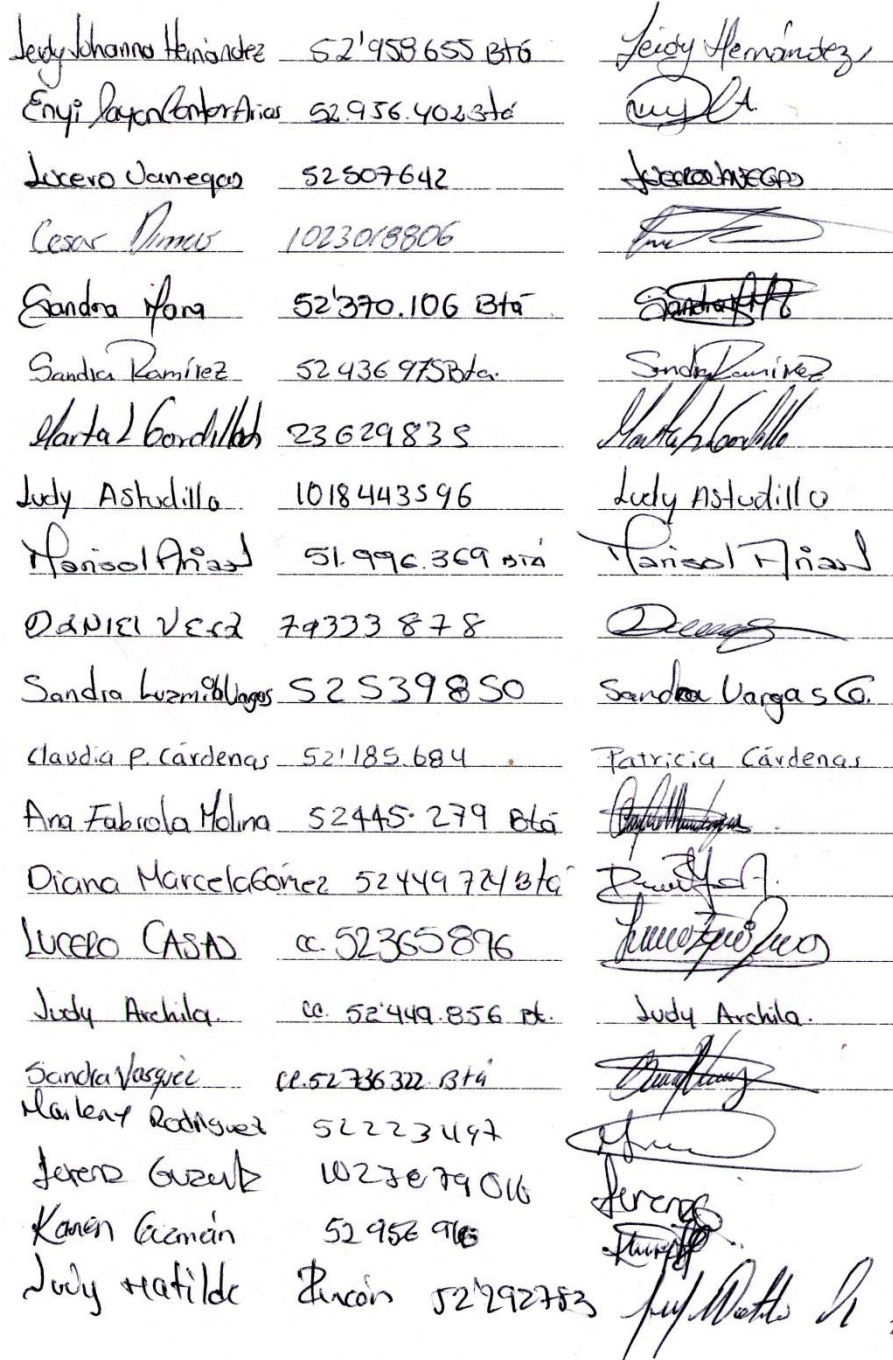 Leidy Johanna Hernández 52'958655 Btá Leidy Hernández
Enyi Arias 52.956.402 Btá
Lucero Vanegas 52507642 LUCERO VANEGAS
Cesar 1023018806
Sandra Mora 52'370.106 Btá Sandra
Sandra Ramírez 52436975 Bta. Sandra Ramírez
Marta L Gordillo 23629835 Marta L Gordillo
Judy Astudillo 1018443596 Judy Astudillo
Marisol Arias 51.996.369 BTA Marisol Arias
DANIEL VERA 79333878
Sandra Luzmila Vargas 52539850 Sandra Vargas G.
Claudia P. Cárdenas 52'185.684 Patricia Cárdenas
Ana Fabiola Molina 52445.279 Btá
Diana Marcela Gómez 52449724 Btá
LUCERO CASAS cc. 52365896
Judy Archila. cc. 52'449.856 Bt. Judy Archila.
Sandra Vasquez cc. 52736322 Btá
Marleny Rodriguez 52223497
Lorena
Karen Guzmán
Judy Matilde Rincón 52'292783